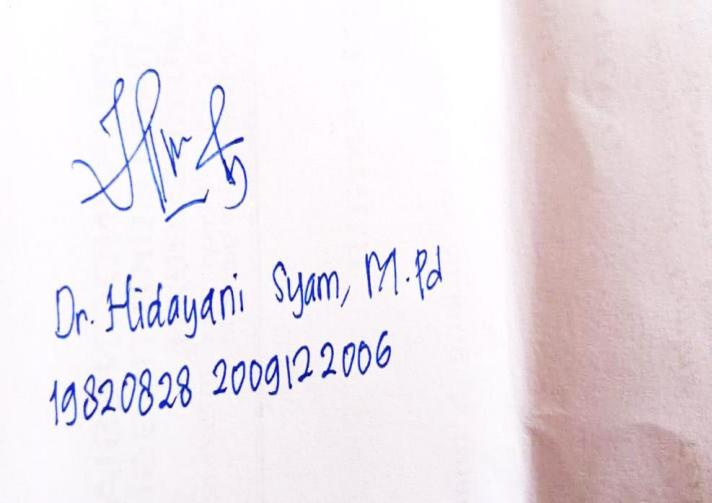 Dr. Hidayani Syam, M.Pd
19820828 2009122006